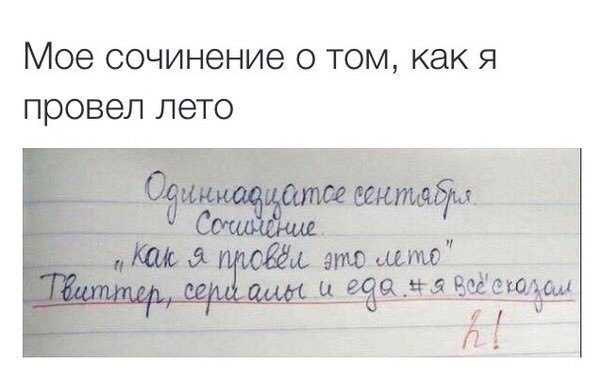 Мое сочинение о том, как я
провел лето
Одиннадцатое сентября.
Сочинение.
„Как я провёл это лето"
Твиттер, сериалы и еда. #я всё сказал
2!